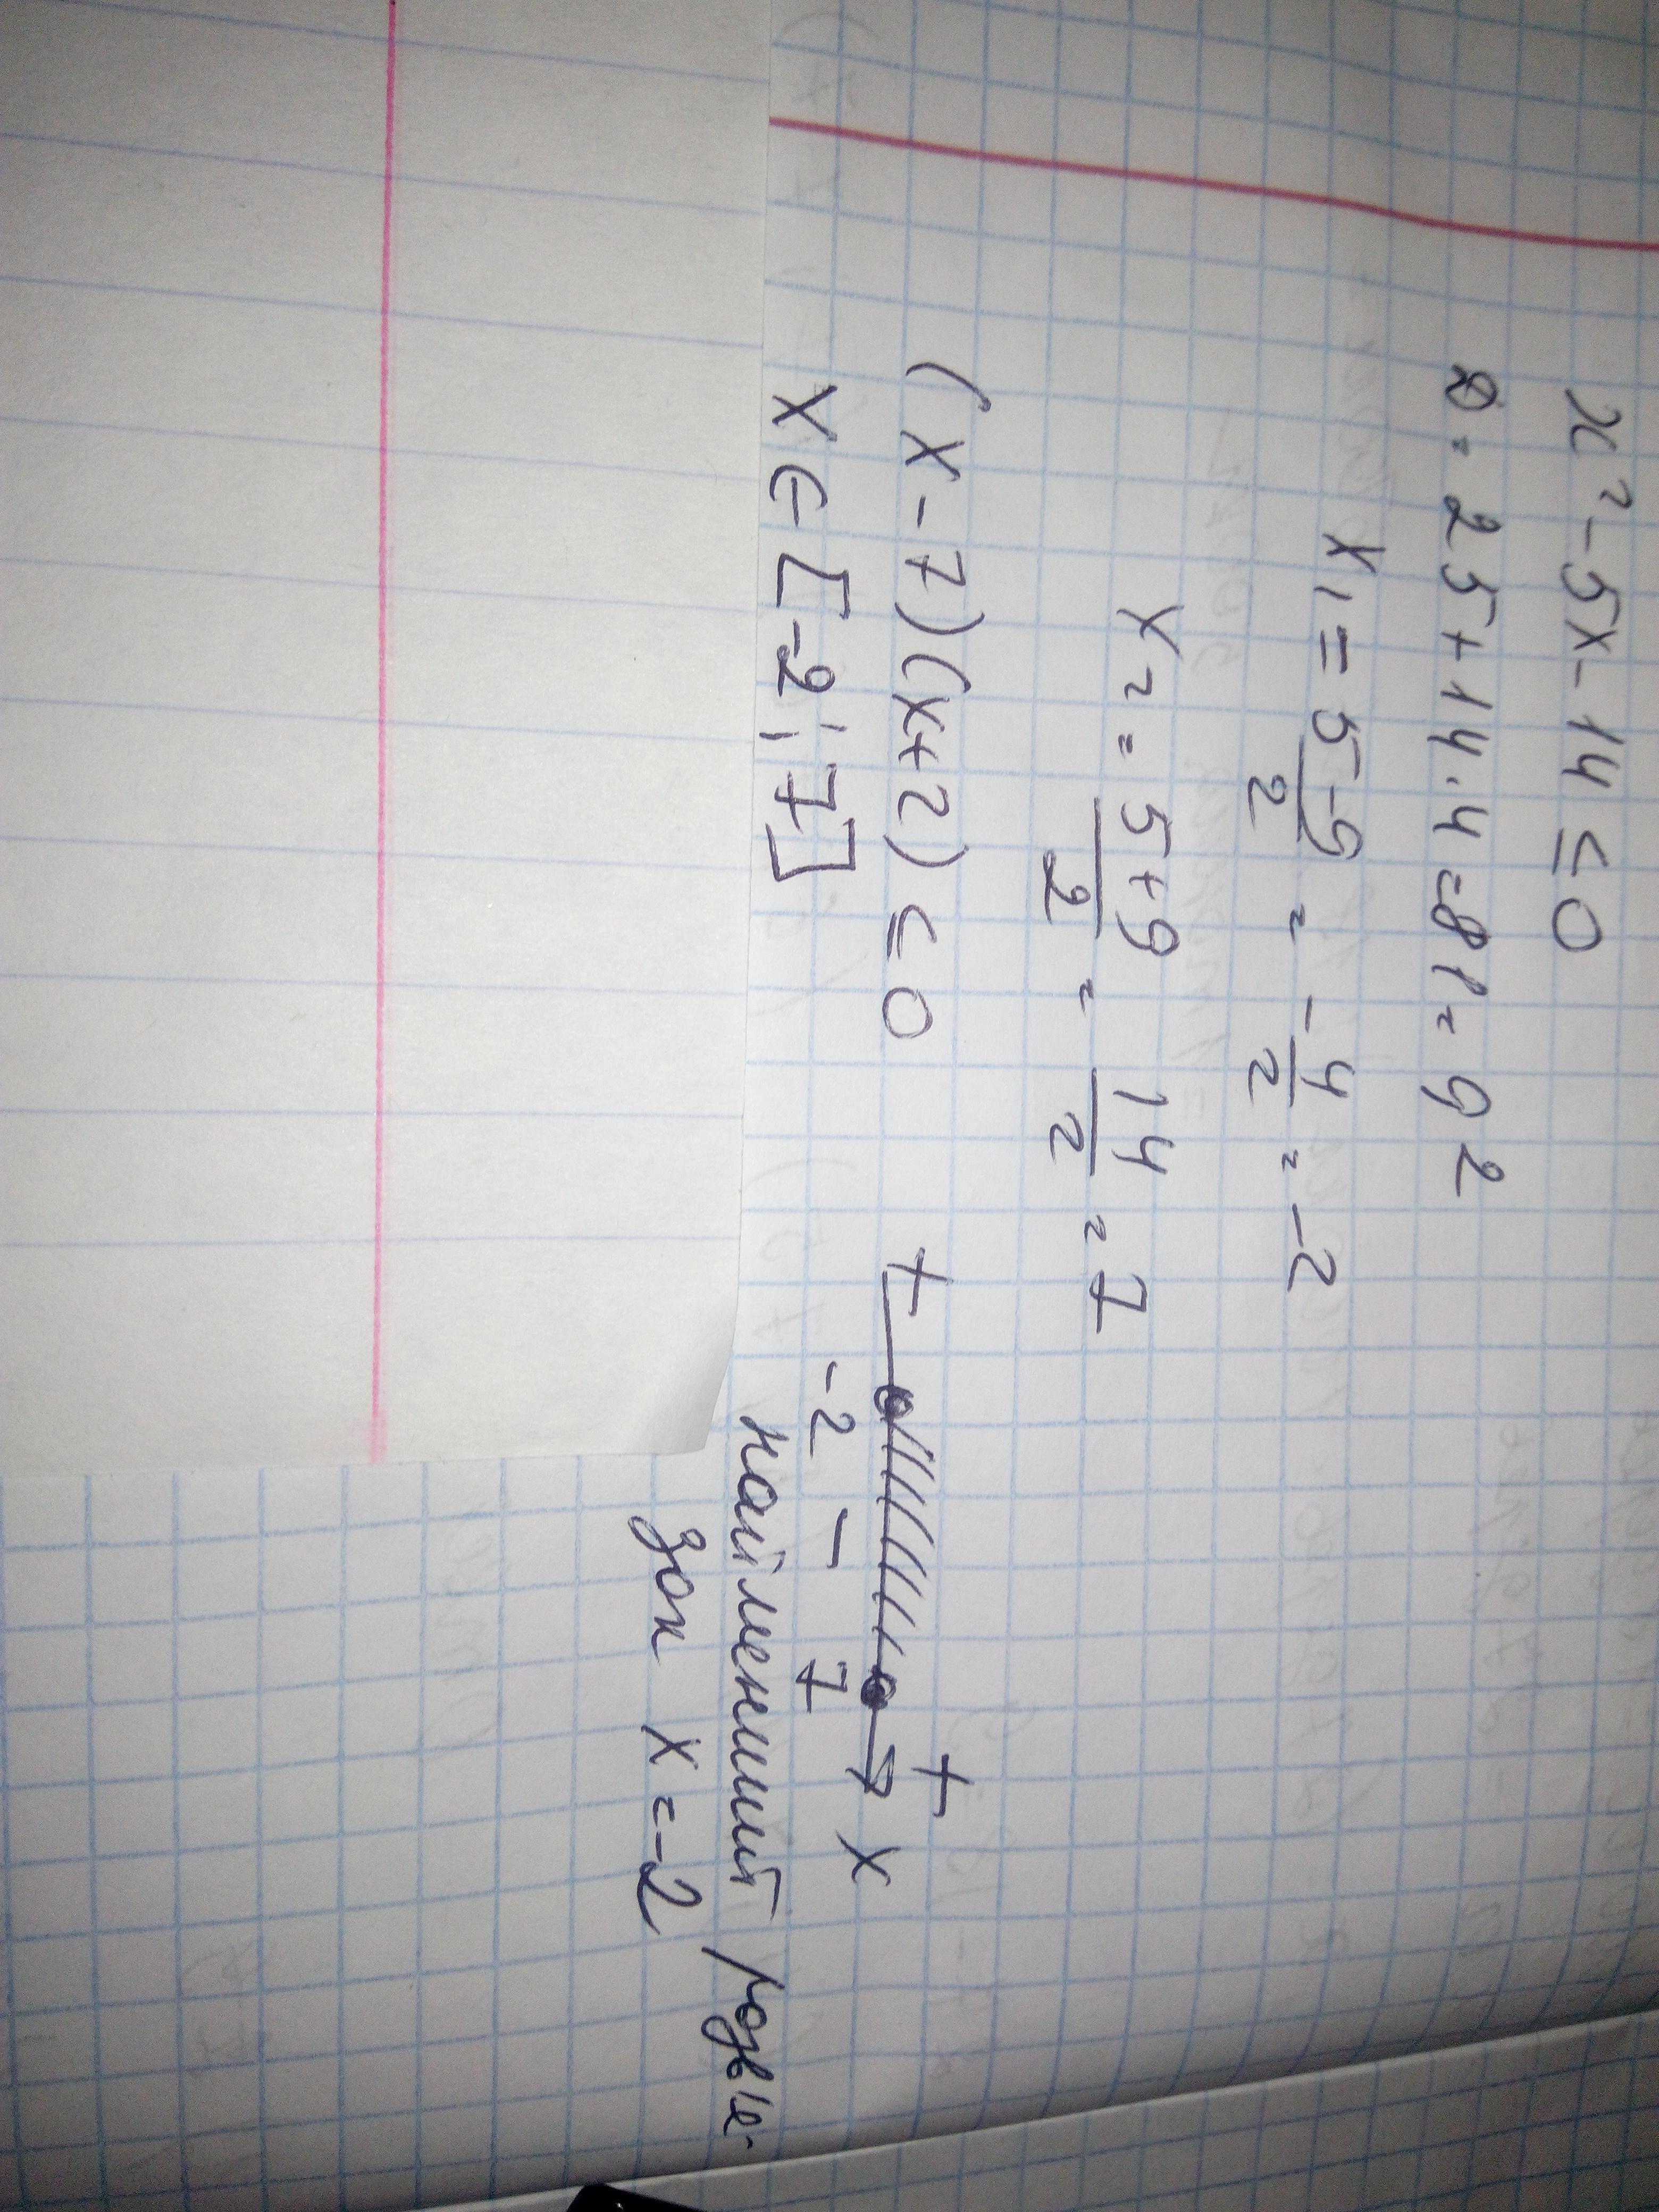 x² - 5x - 14 ≤ 0
D = 25 + 14 · 4 = 81 = 9²
x₁ = 5-9/2 = -4/2 = -2
x₂ = 5+9/2 = 14/2 = 7
(x - 7)(x + 2) ≤ 0
+ +
x
-2 - 7
x ∈ [-2; 7]
найменший розв'я-
зок x = -2